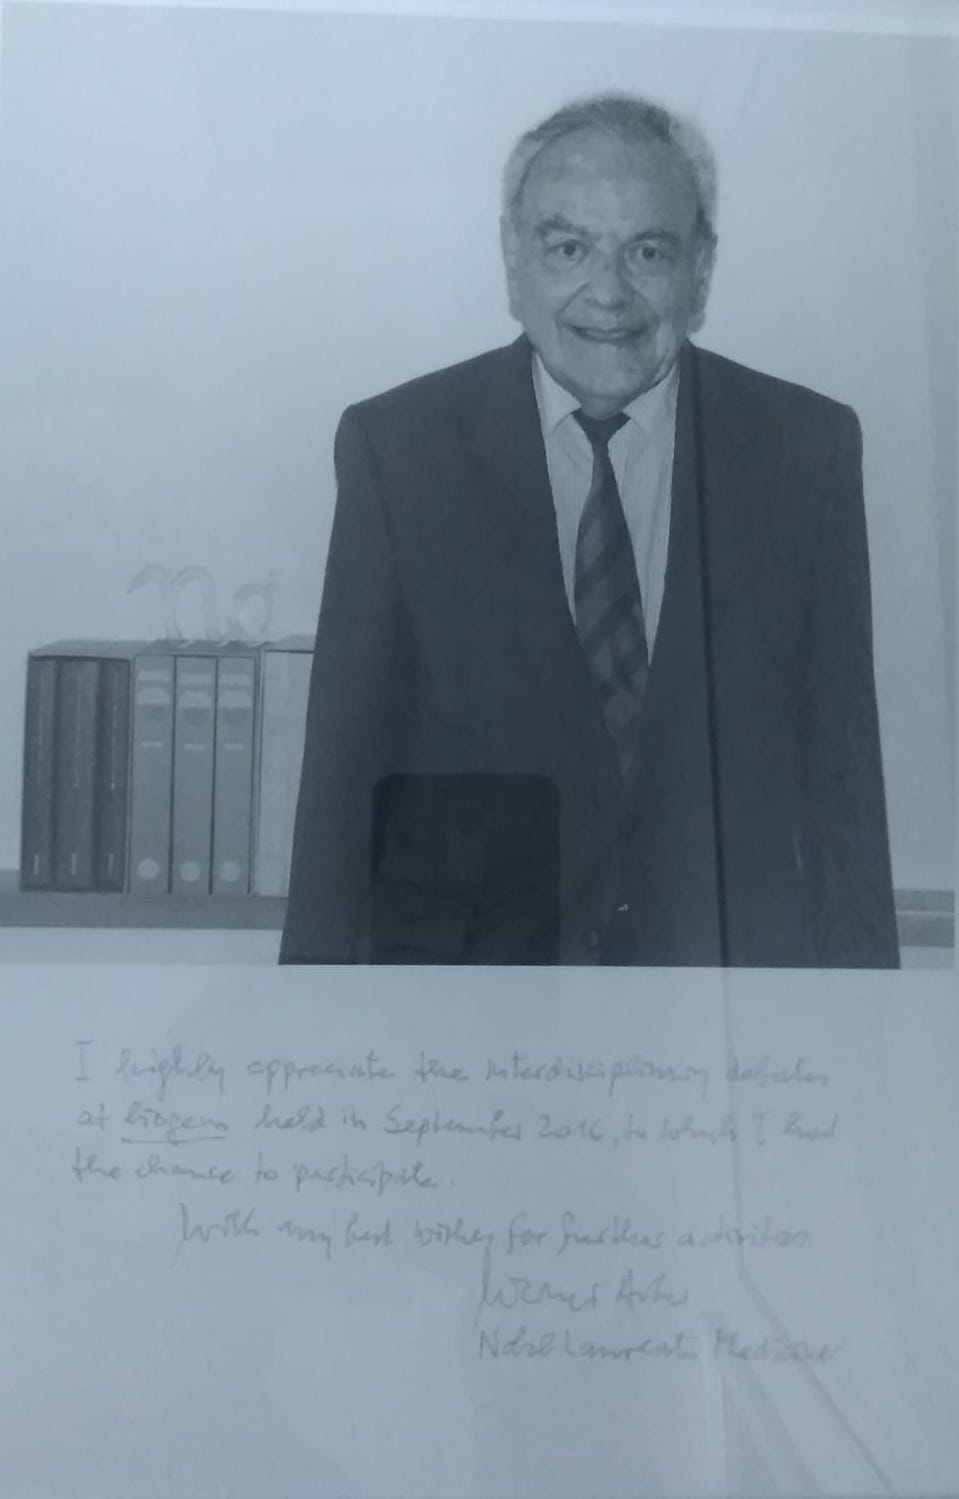 I highly appreciate the interdisciplinary debates
at biogem held in September 2016, to which I had
the chance to participate.
With my best wishes for further activities
Werner Arber
Nobel Laureate Medicine